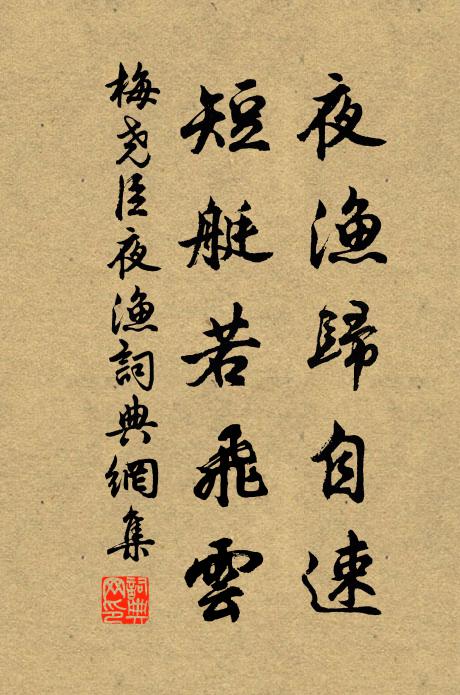 夜漁歸自速
短艇若飛雲
梅堯臣夜漁詞典網集
詞典網印